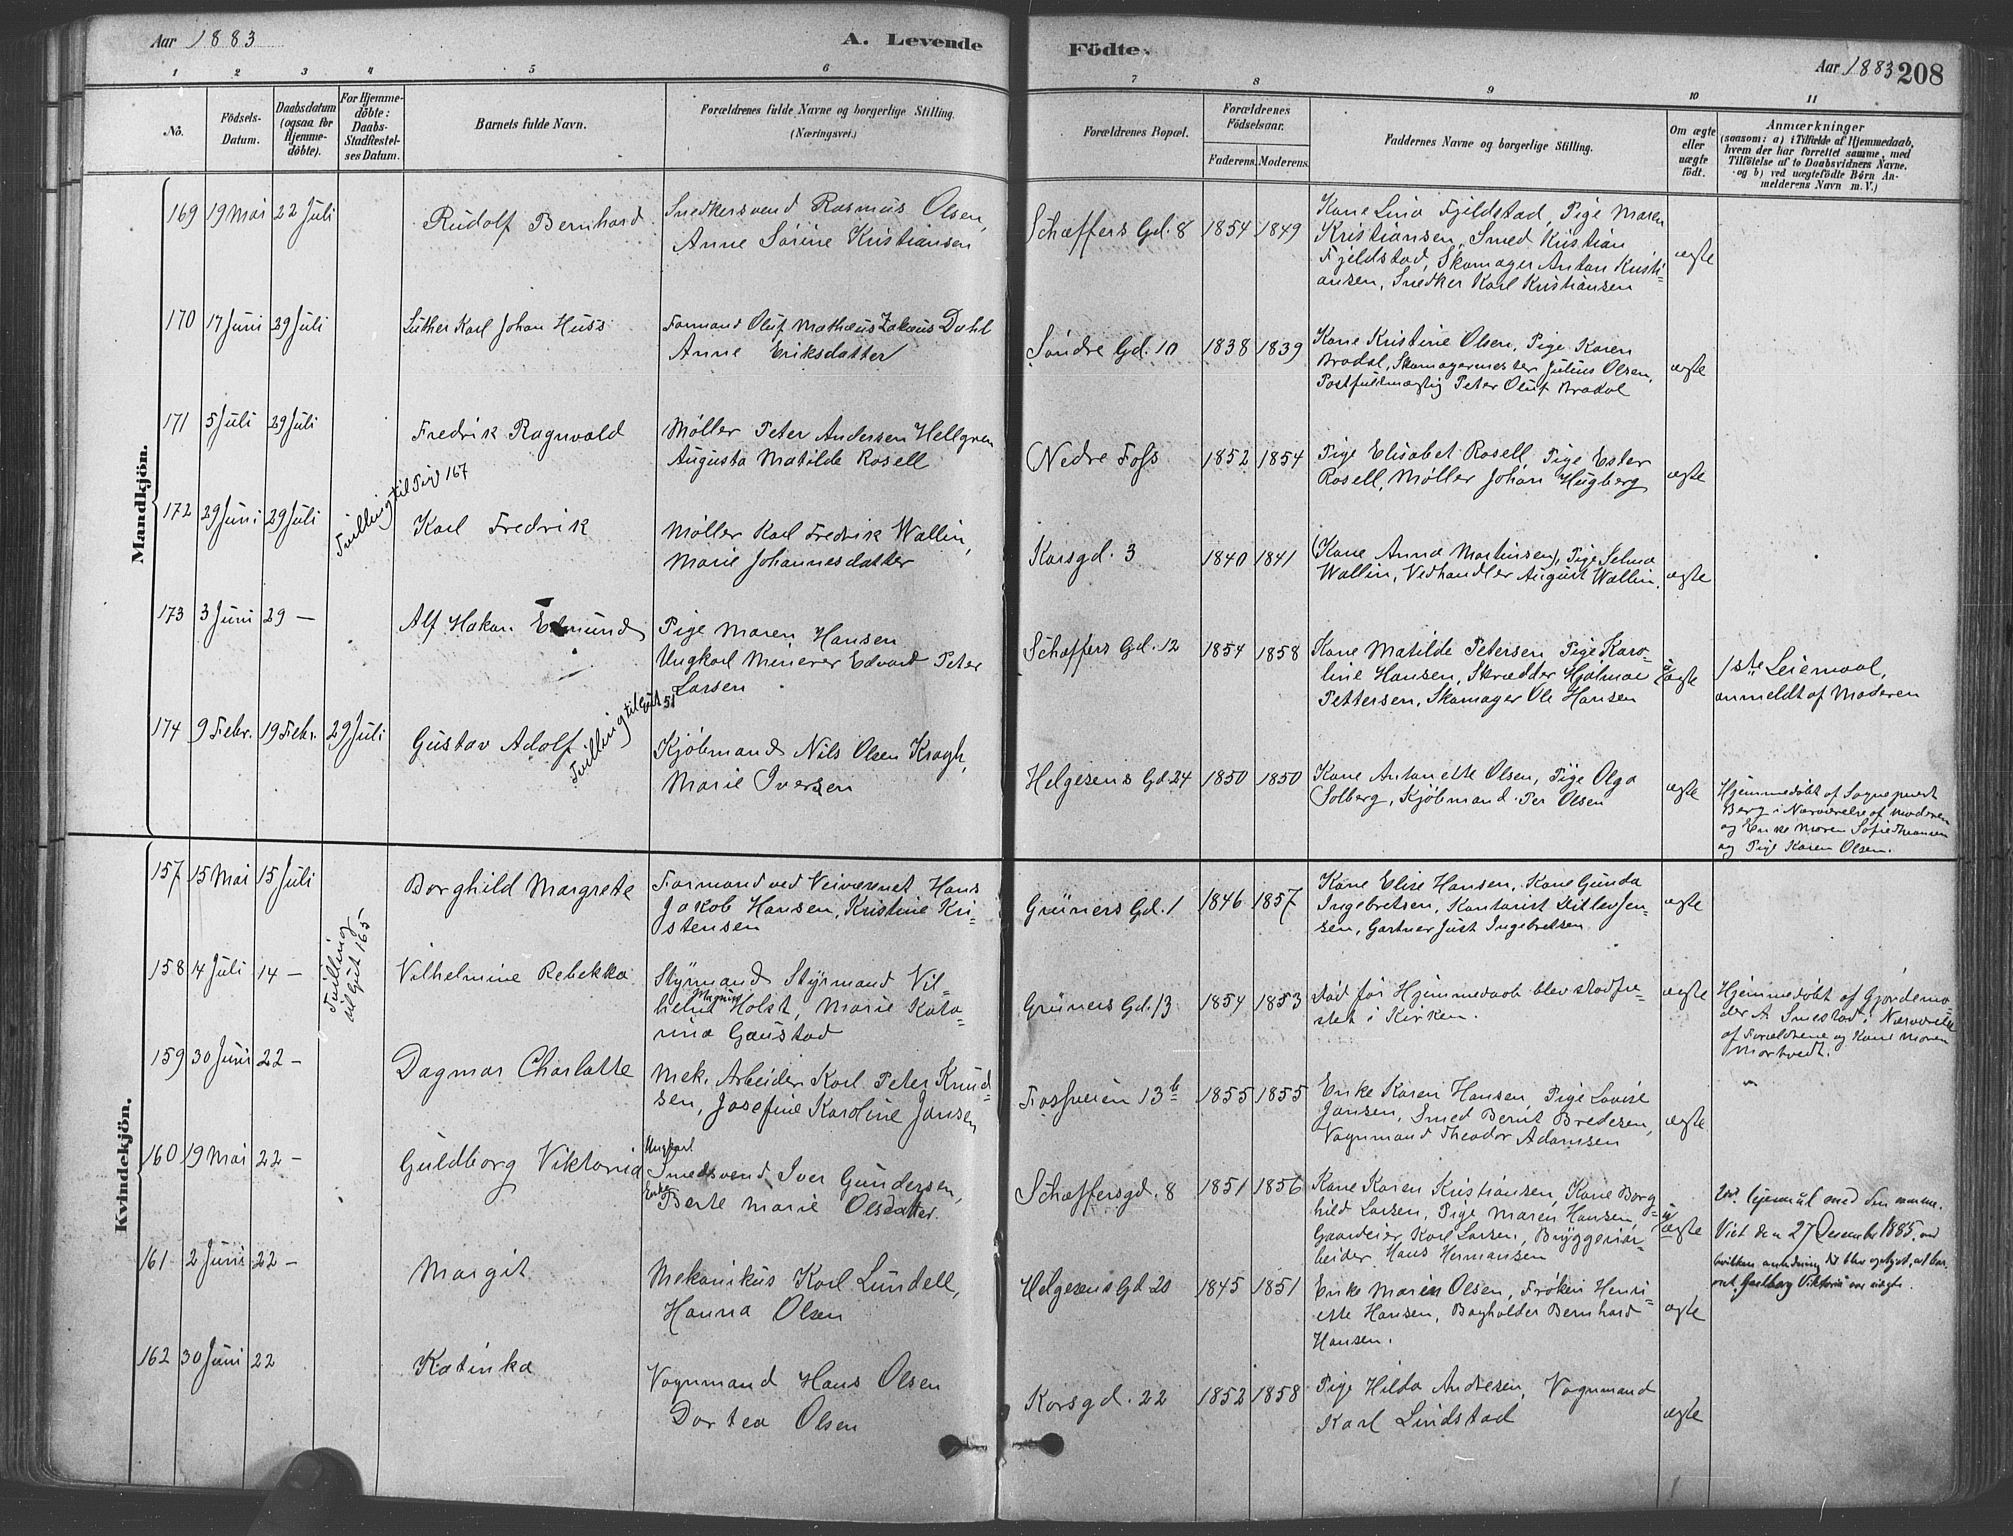 Aar 1883
A. Levende
Födte.
Aar 1883
208
1 2 3 4 5 6 7 8 9 10 11
No.
Födsels-
Datum.
Daabsdatum
(ogsaa for
Hjemme-
döbte).
For Hjemme-
döbte:
Daabs-
Stadfæstel-
ses Datum.
Barnets fulde Navn.
Forældrenes fulde Navne og borgerlige Stilling.
(Næringsvei.)
Forældrenes Bopæl.
Forældrenes
Födselsaar.
Faderens. Moderens.
Faddernes Navne og borgerlige Stilling.
Om ægte
eller
uægte
födt.
Anmærkninger
(saasom: a) i Tilfælde af Hjemmedaab,
hvem der har forrettet samme, med
Tilföielse af to Daabsvidners Navne.
og b) ved uægtefödte Börn An-
melderens Navn m.V.)
Mandkjön.
169 19 Mai 22 Juli
Rudolf Bernhard
Snedkersvend Rasmus Olsen,
Anne Sørine Kristiansen
Schæffers Gd. 8 1854 1849
Kone Lina Fjeldstad, Pige Maren
Kristiansen, Smed Kristian
Fjeldstad, Skomager Anton Kristi-
ansen, Snedker Karl Kristiansen
ægte
170 17 Juni 29 Juli
Luther Karl Johan Huss
Formand Oluf Mathæus Zakæus Dahl
Anne Eriksdatter
Søndre Gd. 10 1838 1839
Kone Kristine Olsen, Pige Karen
Bradal, Skomagermester Julius Olsen,
Postfuldmægtig Peter Oluf Bradal
ægte
171 5 Juli 29 Juli
Fredrik Ragnvald
Møller Peter Andersen Hellgren
Augusta Matilde Rosell
Nedre Foss 1852 1854
Pige Elisabet Rosell, Pige Ester
Rosell, Møller Johan Hugberg
ægte
172 29 Juni 29 Juli
Tvilling til Pige 167
Karl Fredrik
Møller Karl Fredrik Wallin,
Marie Johannesdatter
Korsgd. 3 1840 1841
(Kone Anna Martinsen), Pige Selma
Wallin, Vedhandler August Wallin.
ægte
173 3 Juni 29 —
Alf Hakon Edmund
Pige Maren Hansen
Ungkarl Minerer Edvard Peter
Larsen
Schæffers Gd. 12 1854 1858
Kone Matilde Petersen Pige Karo-
line Hansen, Skrædder Hjalmar
Pettersen, Skomager Ole Hansen
uægte
1ste Leiemaal,
anmeldt af Moderen
174 9 Febr. 19 Febr. 29 Juli
Gustav Adolf
Tvilling til Gut 51
Kjøbmand Nils Olsen Kragh,
Marie Iversen
Helgesens Gd. 24 1850 1850
Kone Antonette Olsen, Pige Olga
Solberg, Kjøbmand Per Olsen
ægte
Hjemmedøbt af Sognepræst
Berg i Nærværelse af Moderen
og Enke Maren Sofie
og Pige Karen Olsen.
Kvindekjön.
157 15 Mai 15 Juli
Borghild Margrete
Formand ved Veivæsenet Hans
Jakob Hansen, Kristine Kri-
stensen
Grüners Gd. 1 1846 1857
Kone Elise Hansen, Kone Gunda
Ingebretsen, Kontorist Ditlevsen-
sen, Gartner Just Ingebretsen
ægte
158 14 Juli 14 —
Tvilling
til Gut 165
Vilhelmine Rebekka
Styrmand Styrmand Vil-
helm Magnus Holst, Marie Kata-
rina Gaustad
Grüners Gd. 13 1854 1853
Død før Hjemmedaab blev stadfæ-
stet i Kirken.
ægte
Hjemmedøbt af Gjordemo-
der A. Smestad i Nærværelse
af Forældrene og Kone Maren
Mortvedt.
159 30 Juni 22 —
Dagmar Charlotte
Mek. Arbeider Karl Peter Knud-
sen, Josefine Karoline Jansen
Fossveien 13 b 1855 1855
Enke Karen Hansen, Pige Lovise
Jansen, Smed Bernt Bredesen,
Vognmand Theodor Adamsen
ægte
160 19 Mai 22 —
Guldborg Viktoria
Ungkarl
Smedsvend Iver Gundersen,
Enke
Berte Marie Olsdatter.
Schæffersgd. 8 1851 1856
Kone Karen Kristiansen, Kone Borg-
hild Larsen, Pige Maren Hansen,
Gaardeier Karl Larsen, Bryggeriar-
beider Hans Hermansen
uægte
lejemaal med den samme.
Viet den 27 December 1885, ved
hvilken anledning det blev oplyst, at bar-
net Guldborg Viktoria var uægte.
161 2 Juni 22 —
Margit
Mekanikus Karl Lundell,
Hanna Olsen
Helgesens Gd. 20 1845 1851
Enke Maren Olsen, Frøken Henri-
ette Hansen, Bogholder Bernhard
Hansen.
ægte
162 30 Juni 22
Katinka
Vognmand Hans Olsen
Dortea Olsen
Korsgd. 22 1852 1858
Pige Hilda Andresen, Vognmand
Karl Lindstad
ægte